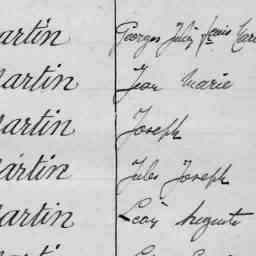 artin Georges Jules Louis
Martin Jean Marie
Martin Joseph
Martin Jules Joseph
Martin Léon Auguste